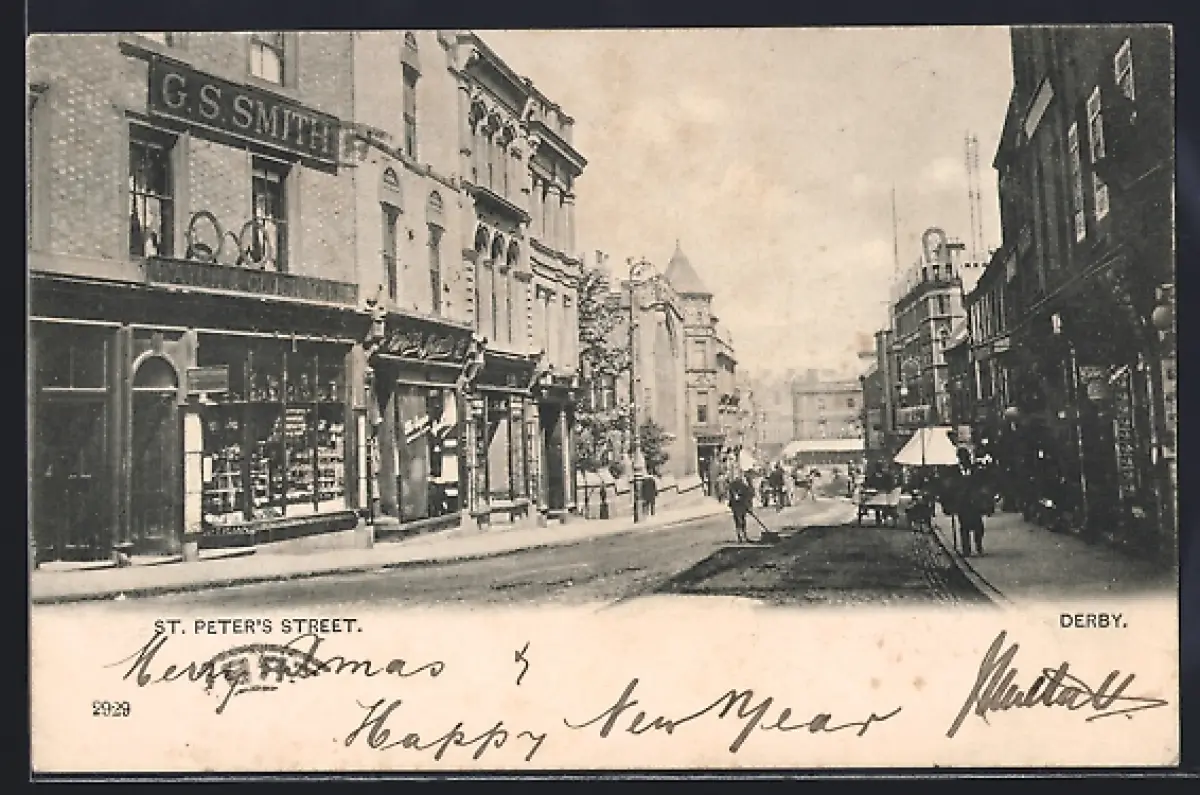 G.S. SMITH
ST. PETER'S STREET.
DERBY.
Merry Xmas &
2929
Happy New Year